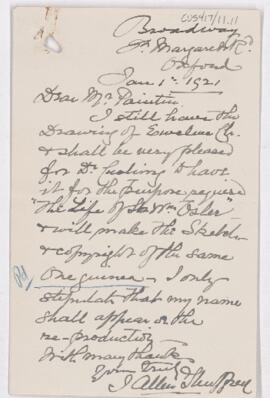 CUS417/11.11
Broadway
St. Margaret's Rd.
Oxford
Jan 1st 1921
Dear Mr Paintin
I still have the
Drawing of Ewelme Ch.
& shall be very pleased
for Dr. Cushing to have
it for the purpose required
"The Life of Sir Wm Osler"
& will make the Sketch
& copyright of the same
One guinea – I only
stipulate that my name
shall appear on the
re-production
With many thanks
Yours truly
J. Allen
Pd